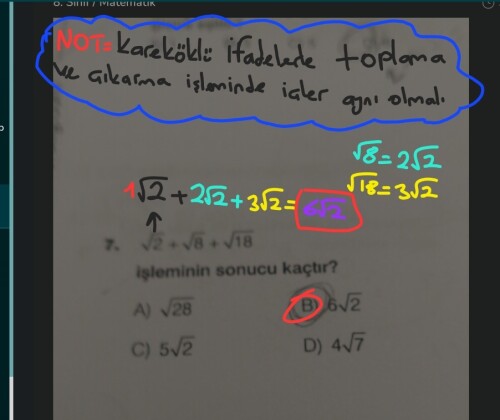 8. Sınıf / Matematik
NOT= Kareköklü ifadelerle toplama
ve çıkarma işleminde içler aynı olmalı.
√8=2√2
√18=3√2
1√2+2√2+3√2=6√2
7. √2+√8+√18
işleminin sonucu kaçtır?
A) √28 B) 6√2
C) 5√2 D) 4√7